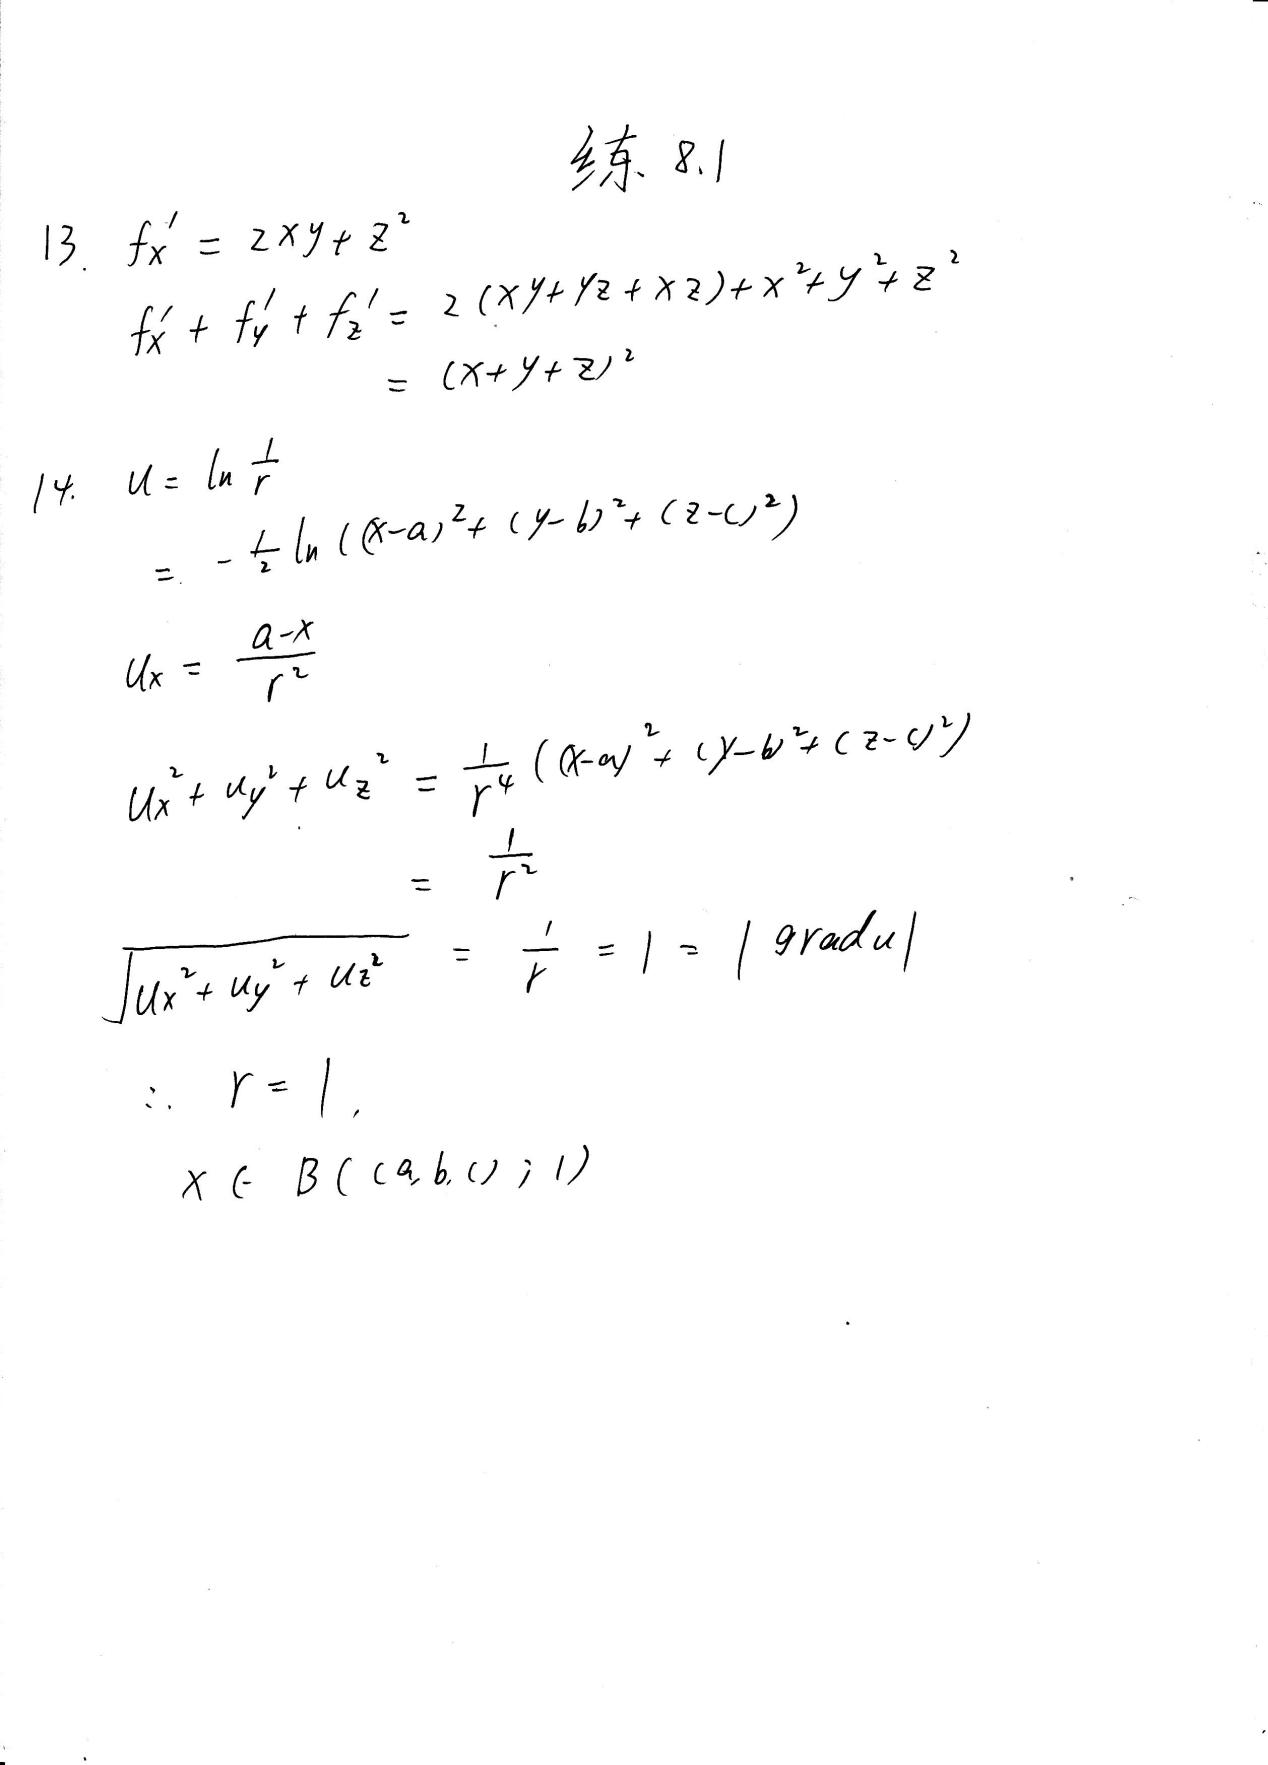 练 8.1
13. fx' = 2xy + z²
fx' + fy' + fz' = 2(xy + yz + xz) + x² + y² + z²
= (x + y + z)²
14. u = ln 1/r
= -1/2 ln((x-a)² + (y-b)² + (z-c)²)
ux = (a-x)/r²
ux² + uy² + uz² = 1/r⁴ ((x-a)² + (y-b)² + (z-c)²)
= 1/r²
√(ux² + uy² + uz²) = 1/r = 1 = |gradu|
∴ r = 1,
x ∈ B((a,b,c);1)